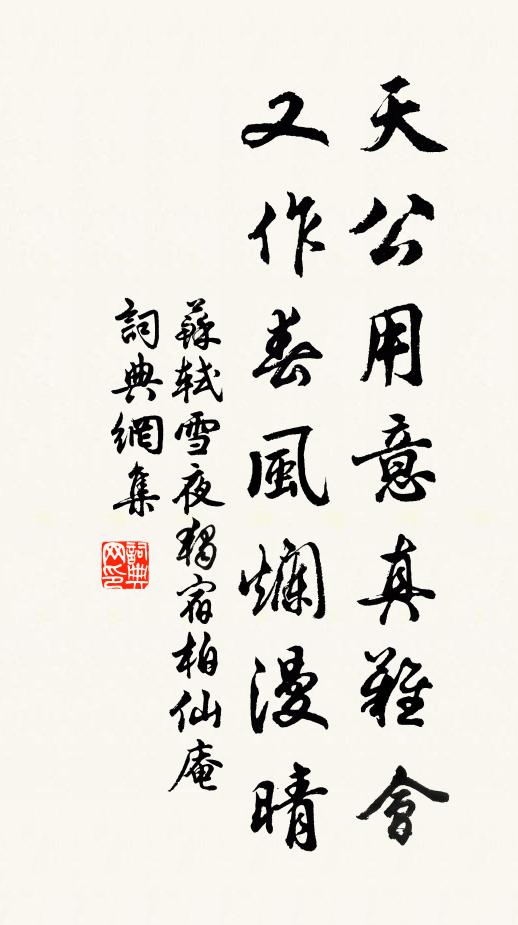 天公用意真難會
又作春風爛漫晴
蘇軾雪夜獨宿柏仙庵
詞典網集
詞典网印